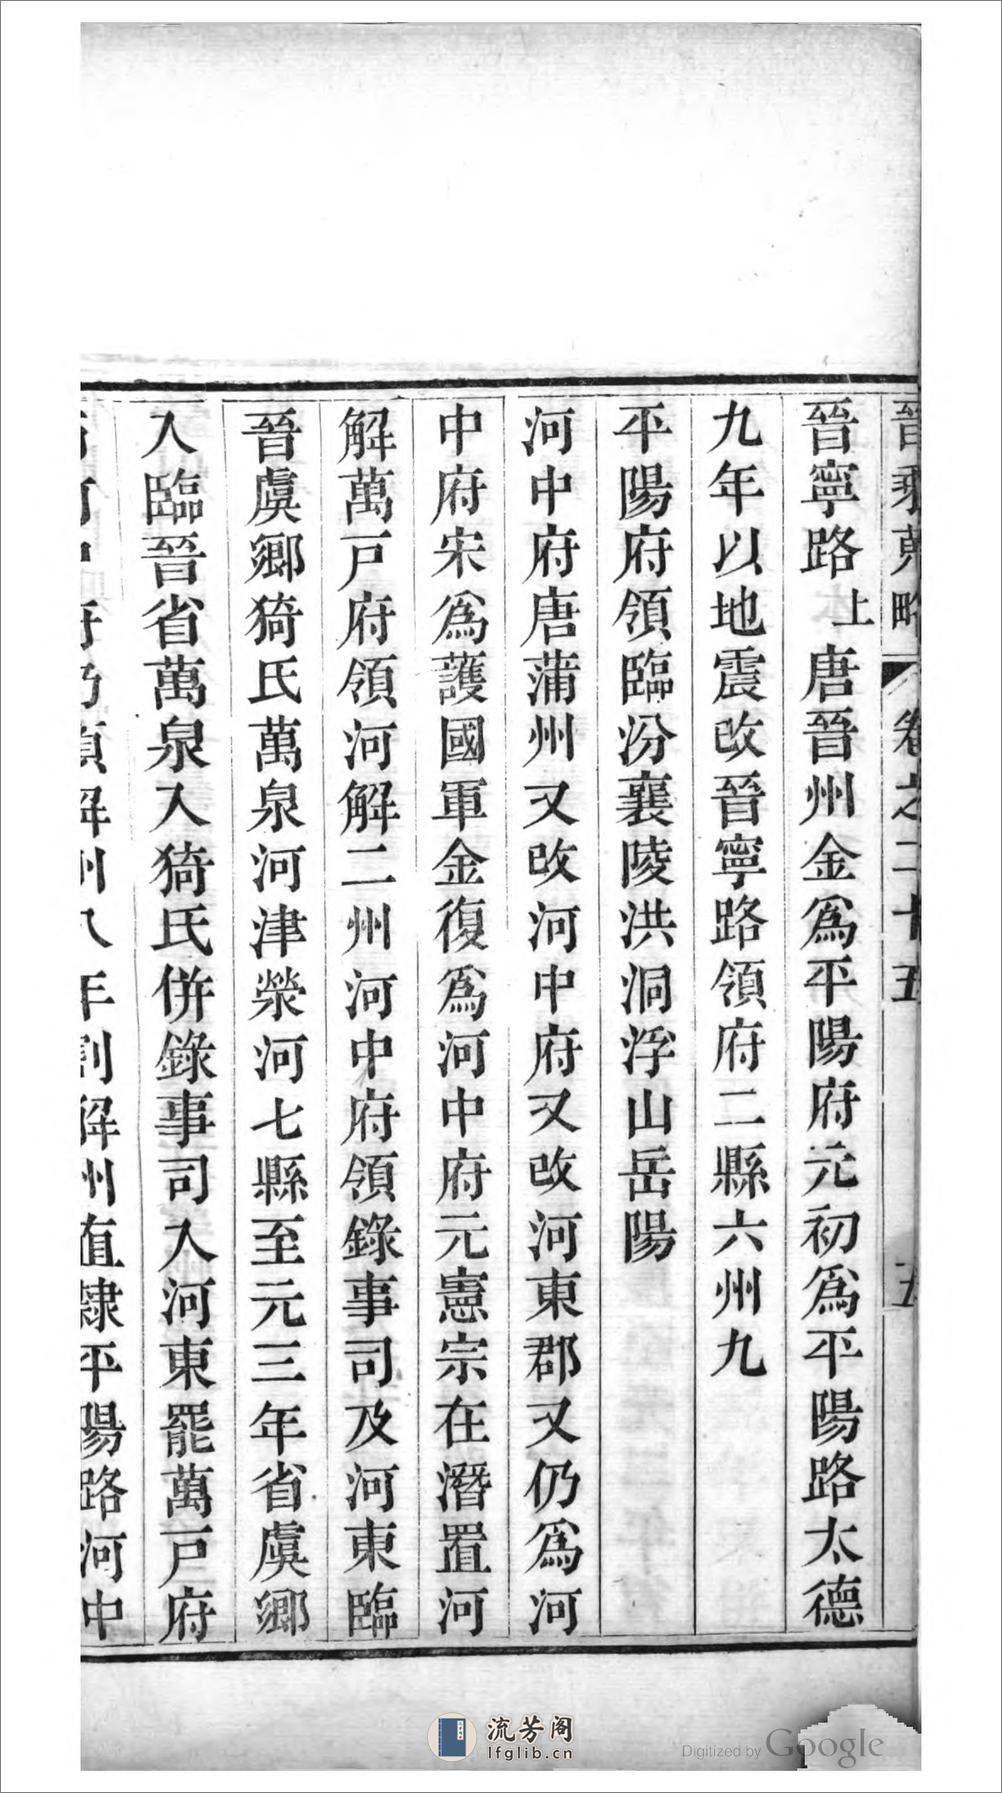 晉乘蒐略 卷之二十五 五
晉寧路上唐晉州金爲平陽府元初爲平陽路太德
九年以地震改晉寧路領府二縣六州九
平陽府領臨汾襄陵洪洞浮山岳陽
河中府唐蒲州又改河中府又改河東郡又仍爲河
中府宋爲護國軍金復爲河中府元憲宗在潛置河
解萬戸府領河解二州河中府領錄事司及河東臨
晉虞鄉猗氏萬泉河津榮河七縣至元三年省虞鄉
入臨晉省萬泉入猗氏併錄事司入河東罷萬戸府
河中府仍領解州八年割解州直隸平陽路河中
流芳阁
lfglib.cn
Digitized by Google